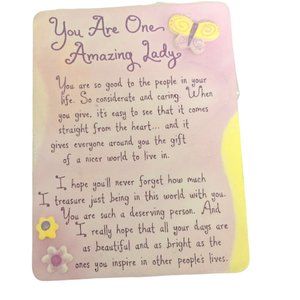 You Are One
Amazing Lady
You are so good to the people in your
life. So considerate and caring. When
you give, it's easy to see that it comes
straight from the heart... and it
gives everyone around you the gift
of a nicer world to live in.
I hope you'll never forget how much
I treasure just being in this world with you.
You are such a deserving person. And
I really hope that all your days are
as beautiful and as bright as the
ones you inspire in other people's lives.